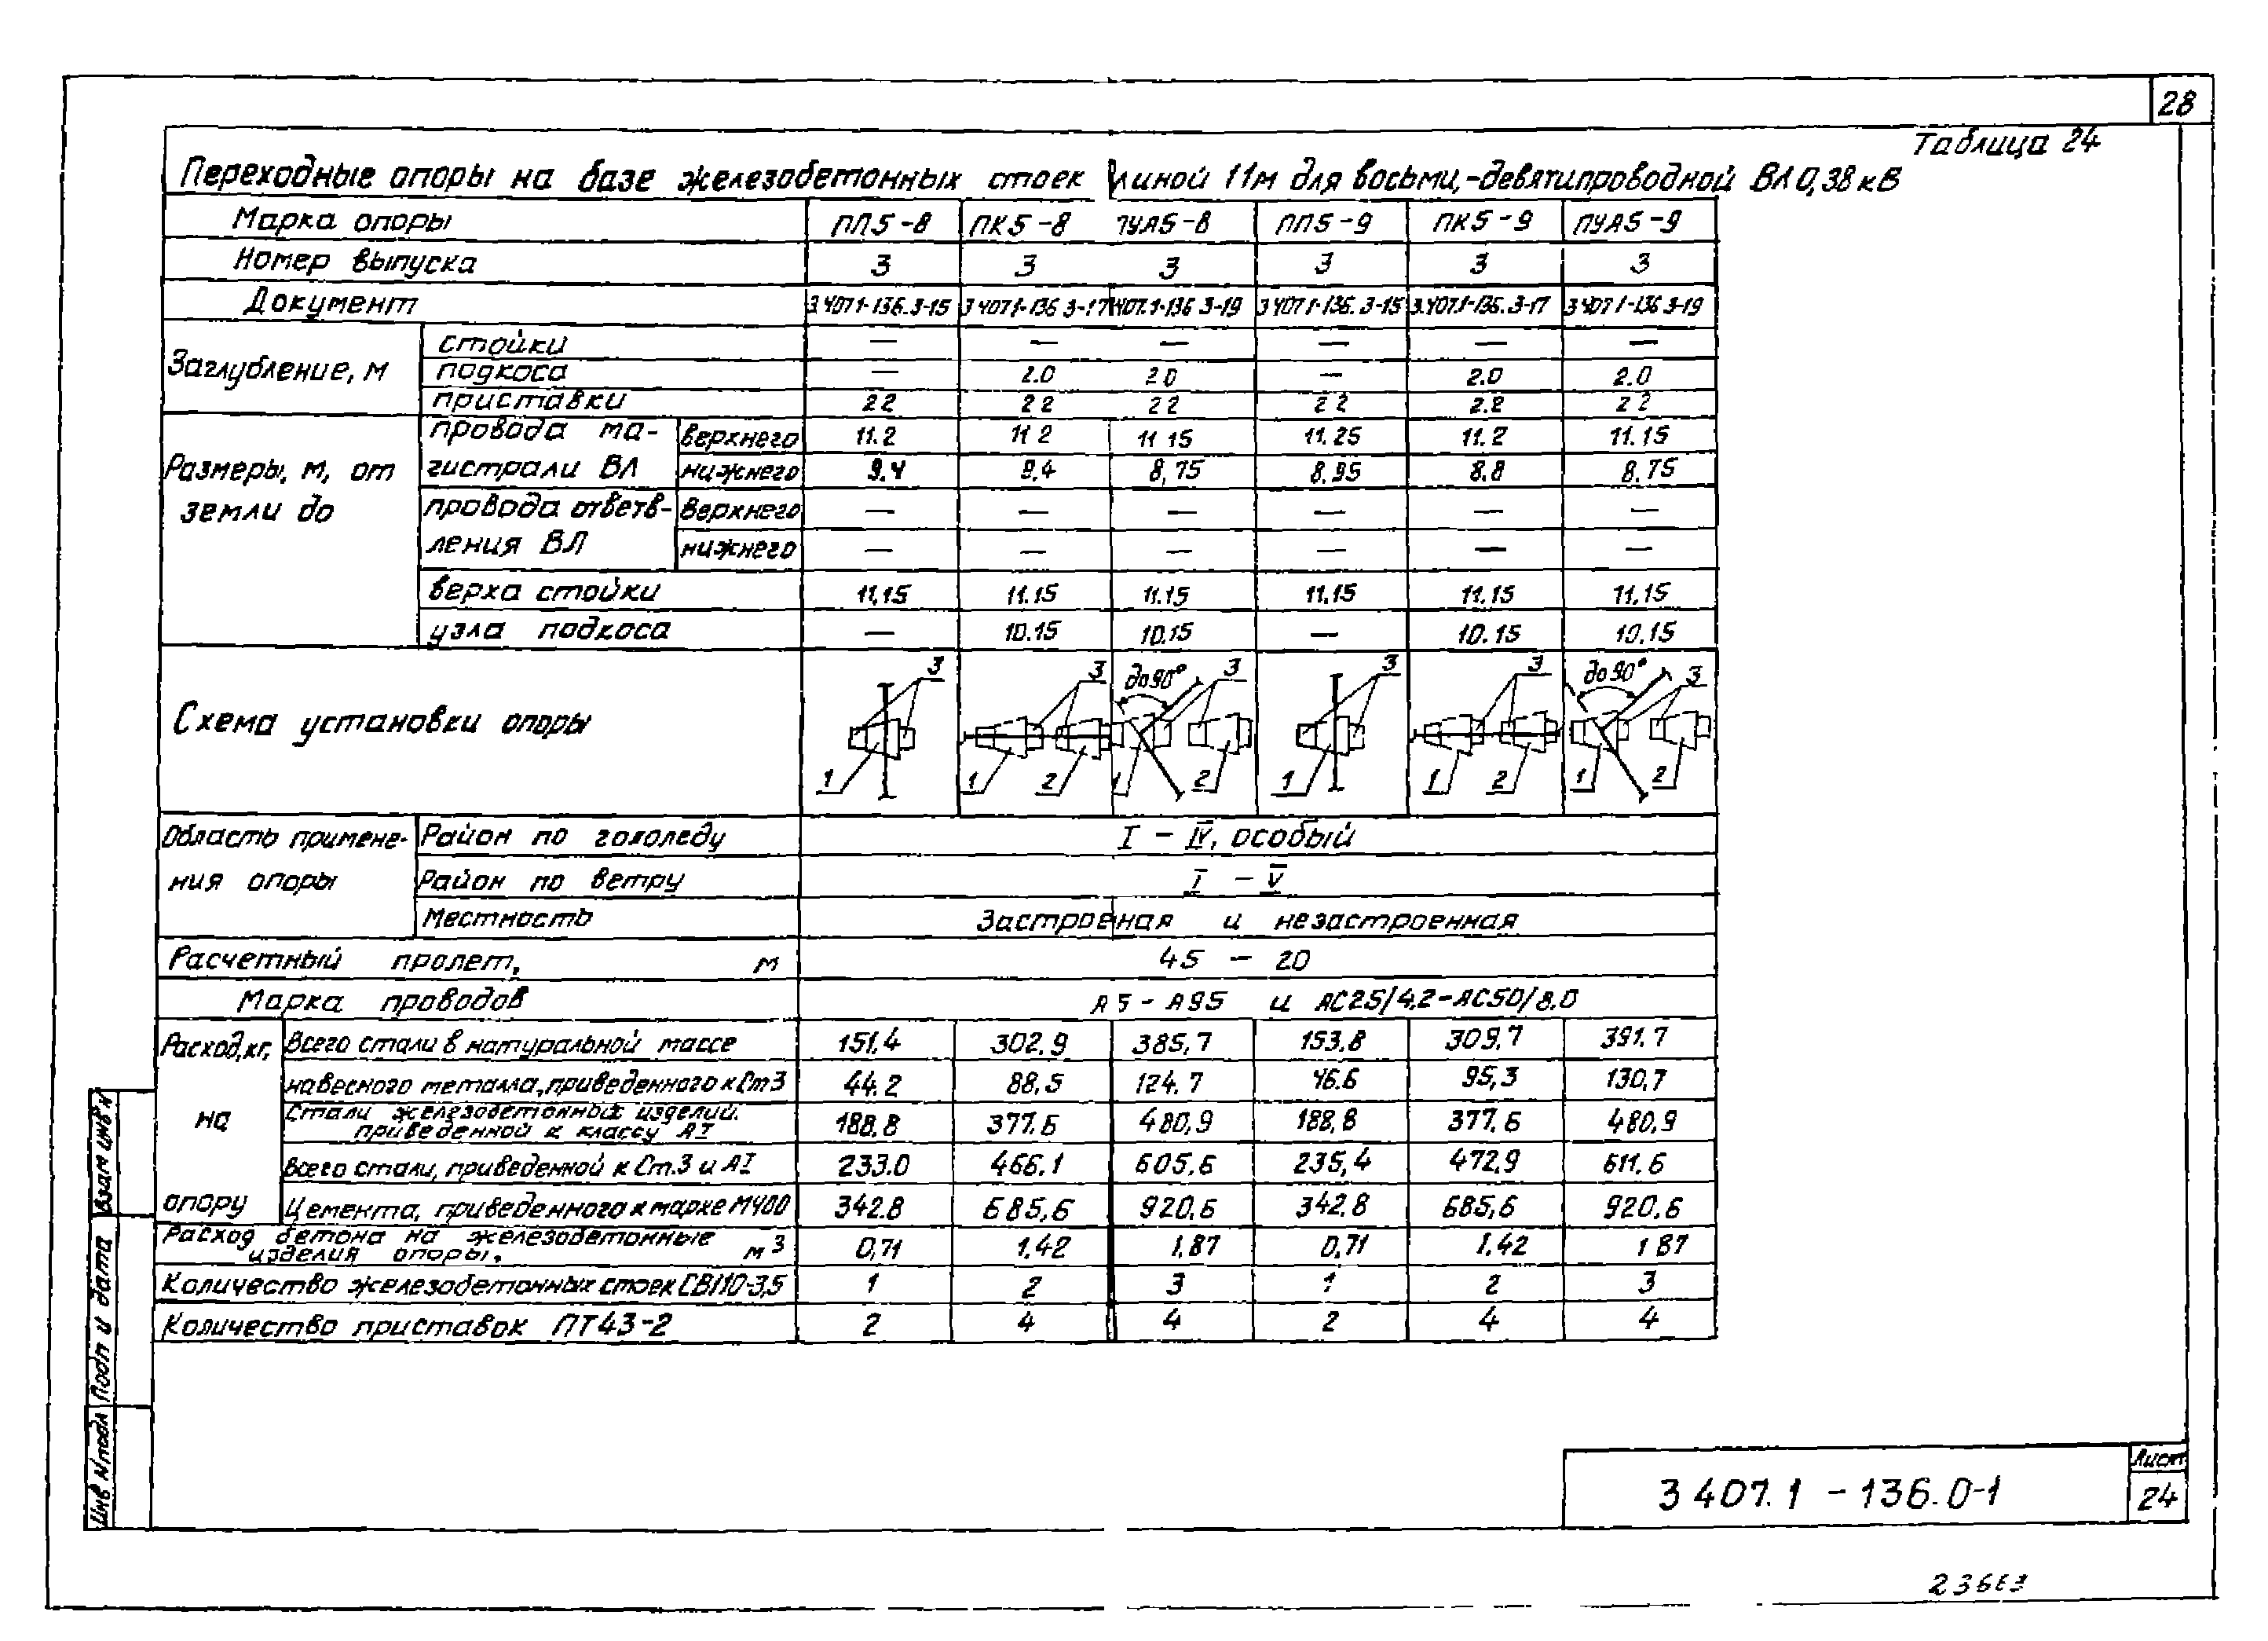 28
Таблица 24
Переходные опоры на базе железобетонных стоек длиной 11м для восьми,-девятипроводной ВЛ 0,38 кВ
Марка опоры ПП5-8 ПК5-8 ПУА5-8 ПП5-9 ПК5-9 ПУА5-9
Номер выпуска 3 3 3 3 3 3
Документ 3 407 1-136. 3-15 3 407 1-136 3-17 407. 1-136 3-19 3 407 1-136. 3-15 3.407.1-136. 3-17 3 407 1-136 3-19
Заглубление, м
стойки — — — — — —
подкоса — 2.0 2 0 — 2.0 2.0
приставки 2 2 2 2 2 2 2 2 2.2 2 2
Размеры, м, от земли до
провода ма- верхнего 11.2 11 2 11 15 11.25 11.2 11.15
гистрали ВЛ нижнего 9.4 9,4 8,75 8.95 8.8 8.75
провода ответв- верхнего — — — — — —
ления ВЛ нижнего — — — — — —
верха стойки 11,15 11.15 11.15 11,15 11.15 11,15
узла подкоса — 10.15 10.15 — 10.15 10.15
Схема установки опоры
3 3 до 90° 3 3 3 до 90° 3
1 1 2 1 2 1 1 2 1 2
Область примене-
ния опоры
Район по гололеду I – IV, особый
Район по ветру I – V
Местность Застроеная и незастроенная
Расчетный пролет, м 45 – 20
Марка проводов А 5 - А 95 и АС25/4,2-АС50/8.0
Расход, кг,
на
опору
Всего стали в натуральной массе 151,4 302,9 385,7 153,8 309,7 391.7
навесного металла, приведенного к Ст3 44.2 88,5 124.7 46.6 95,3 130,7
Стали железобетонных изделий.
приведенной к классу АI 188.8 377.6 480,9 188,8 377.6 480,9
Всего стали, приведенной к Ст.3 и АI 233.0 466.1 605.6 235,4 472,9 611.6
Цемента, приведенного к марке М400 342.8 685,6 920,6 342,8 685,6 920,6
Расход бетона на железобетонные
изделия опоры, м3 0,71 1,42 1,87 0,71 1,42 1 87
Количество железобетонных стоек СВ110-3,5 1 2 3 1 2 3
Количество приставок ПТ43-2 2 4 4 2 4 4
Взам инв N
Подп и дата
Инв N подл
3 407. 1 - 136. 0-1
Лист
24